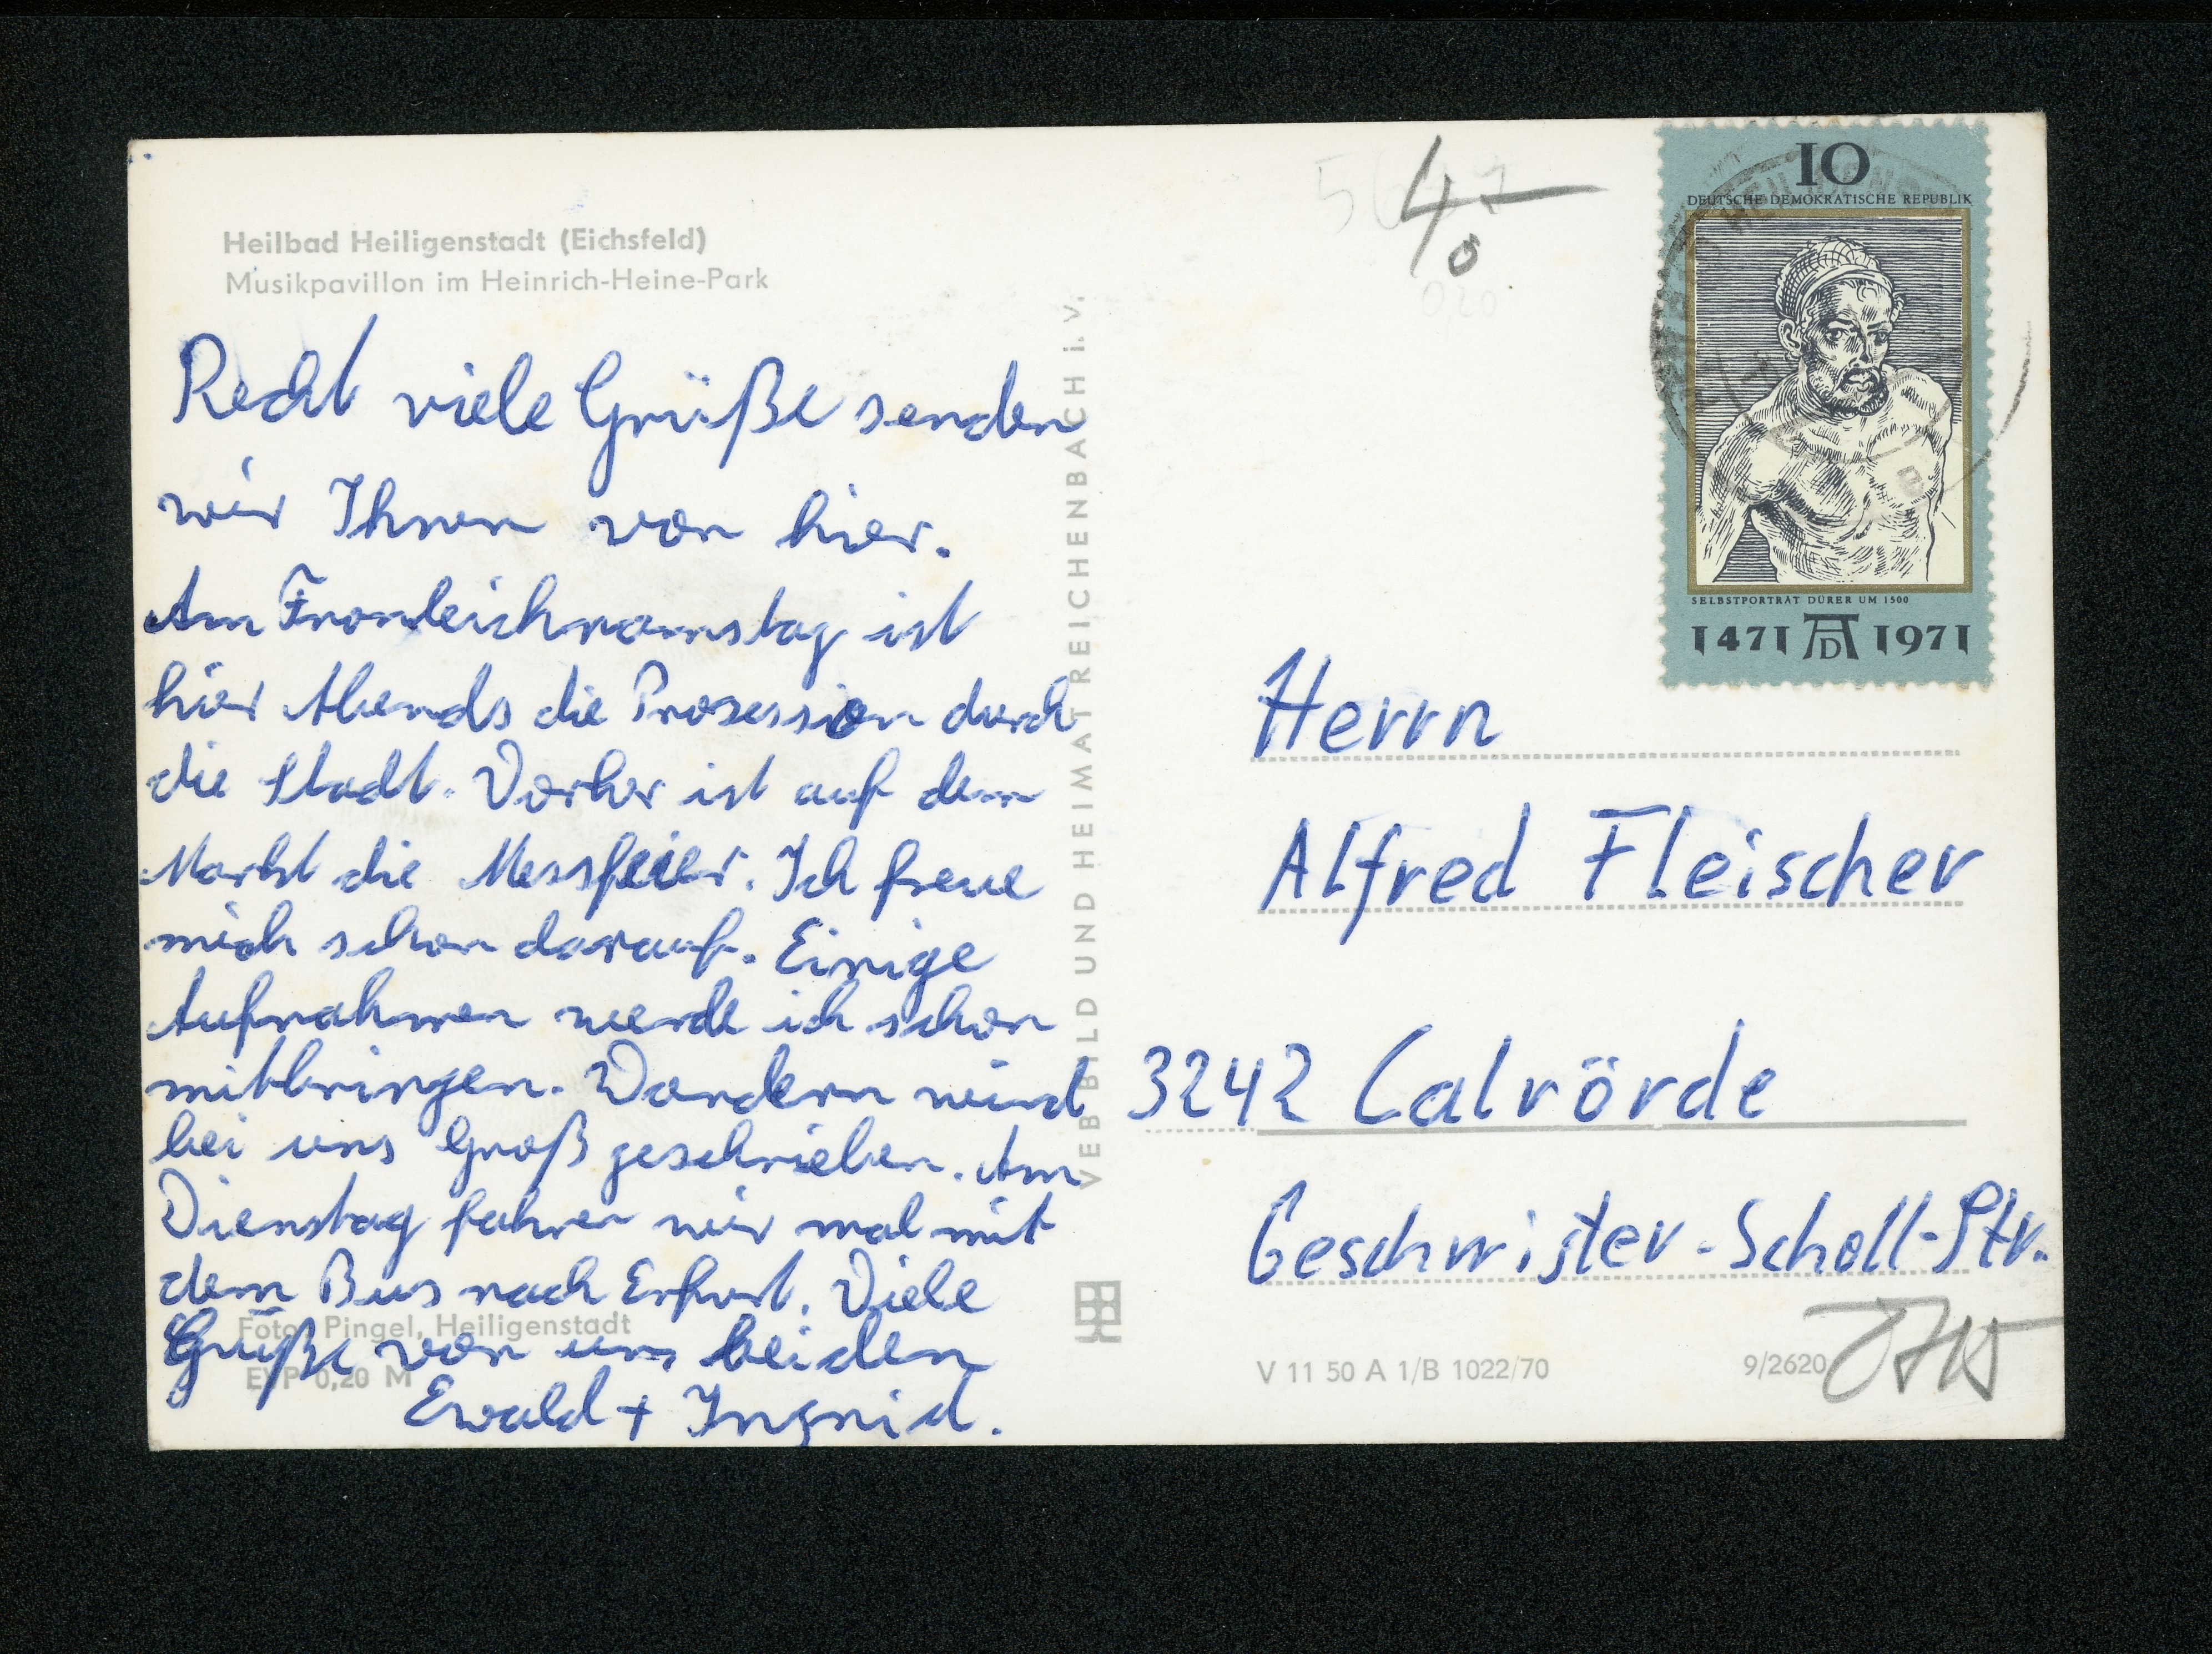 Heilbad Heiligenstadt (Eichsfeld)
Musikpavillon im Heinrich-Heine-Park
Recht viele Grüße senden
wir Ihnen von hier.
Am Fronleichnamstag ist
hier Abends die Prosession durch
die Stadt. Vorher ist auf dem
Markt die Messfeier. Ich freue
mich schon darauf. Einige
Aufnahmen werde ich schon
mitbringen. Wandern wird
bei uns Groß geschrieben. Am
Dienstag fahren wir mal mit
dem Bus nach Erfurt. Viele
Grüße von uns beiden
Ewald + Ingrid.
Foto: Pingel, Heiligenstadt
EVP 0,20 M
VEB BILD UND HEIMAT REICHENBACH i. V.
10
DEUTSCHE DEMOKRATISCHE REPUBLIK
SELBSTPORTRÄT DÜRER UM 1500
1471 AD 1971
0,20
Herrn
Alfred Fleischer
3242 Calvörde
Geschwister-Scholl-Str.
V 11 50 A 1/B 1022/70
9/2620